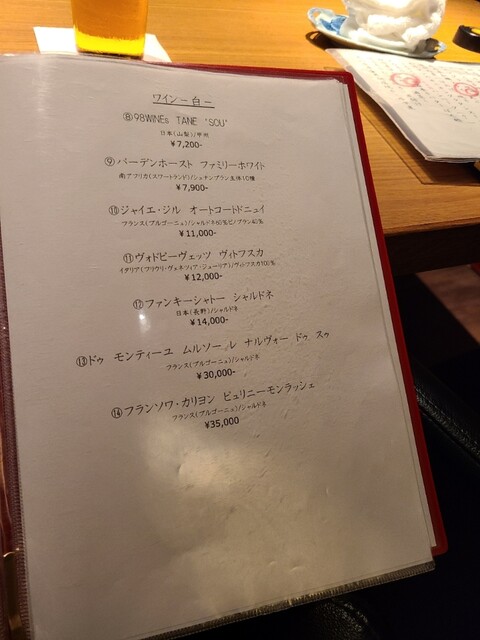 ワイン－白－
⑧98WINEs TANE 'SOU'
日本(山梨)/甲州
¥7,200-
⑨バーデンホースト ファミリーホワイト
南アフリカ(スワートランド)/シュナンブラン主体10種
¥7,900-
⑩ジャイエ・ジル オートコートドニュイ
フランス(ブルゴーニュ)/シャルドネ60%ピノブラン40%
¥11,000-
⑪ヴォドピーヴェッツ ヴィトフスカ
イタリア(フリウリ・ヴェネツィア・ジューリア)/ヴィトフスカ100%
¥12,000-
⑫ファンキーシャトー シャルドネ
日本(長野)/シャルドネ
¥14,000-
⑬ドゥ モンティーユ ムルソー レ ナルヴォー ドゥ スゥ
フランス(ブルゴーニュ)/シャルドネ
¥30,000-
⑭フランソワ・カリヨン ピュリニーモンラッシェ
フランス(ブルゴーニュ)/シャルドネ
¥35,000